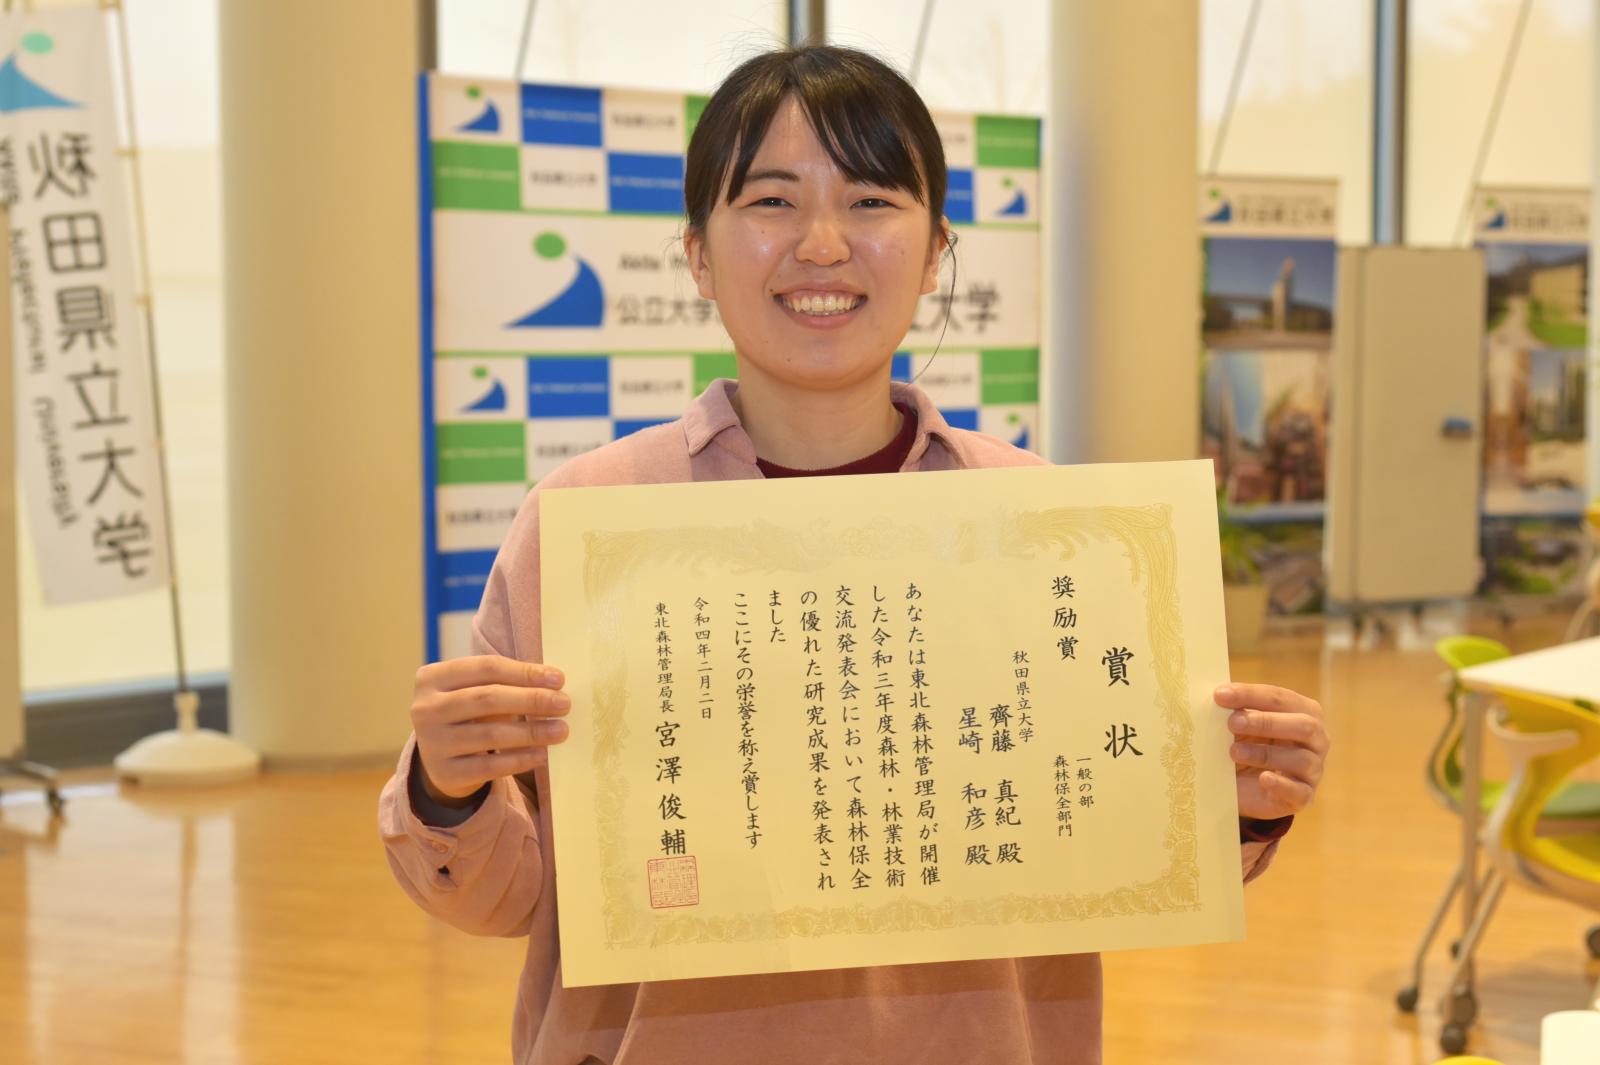 賞状
奨励賞
一般の部
森林保全部門
秋田県立大学
齊藤 真紀 殿
星崎 和彦 殿
あなたは東北森林管理局が開催
した令和三年度森林・林業技術
交流発表会において森林保全
の優れた研究成果を発表され
ました
ここにその栄誉を称え賞します
令和四年二月二日
東北森林管理局長 宮澤俊輔
秋田県立大学
Akita
公立大学
立大学